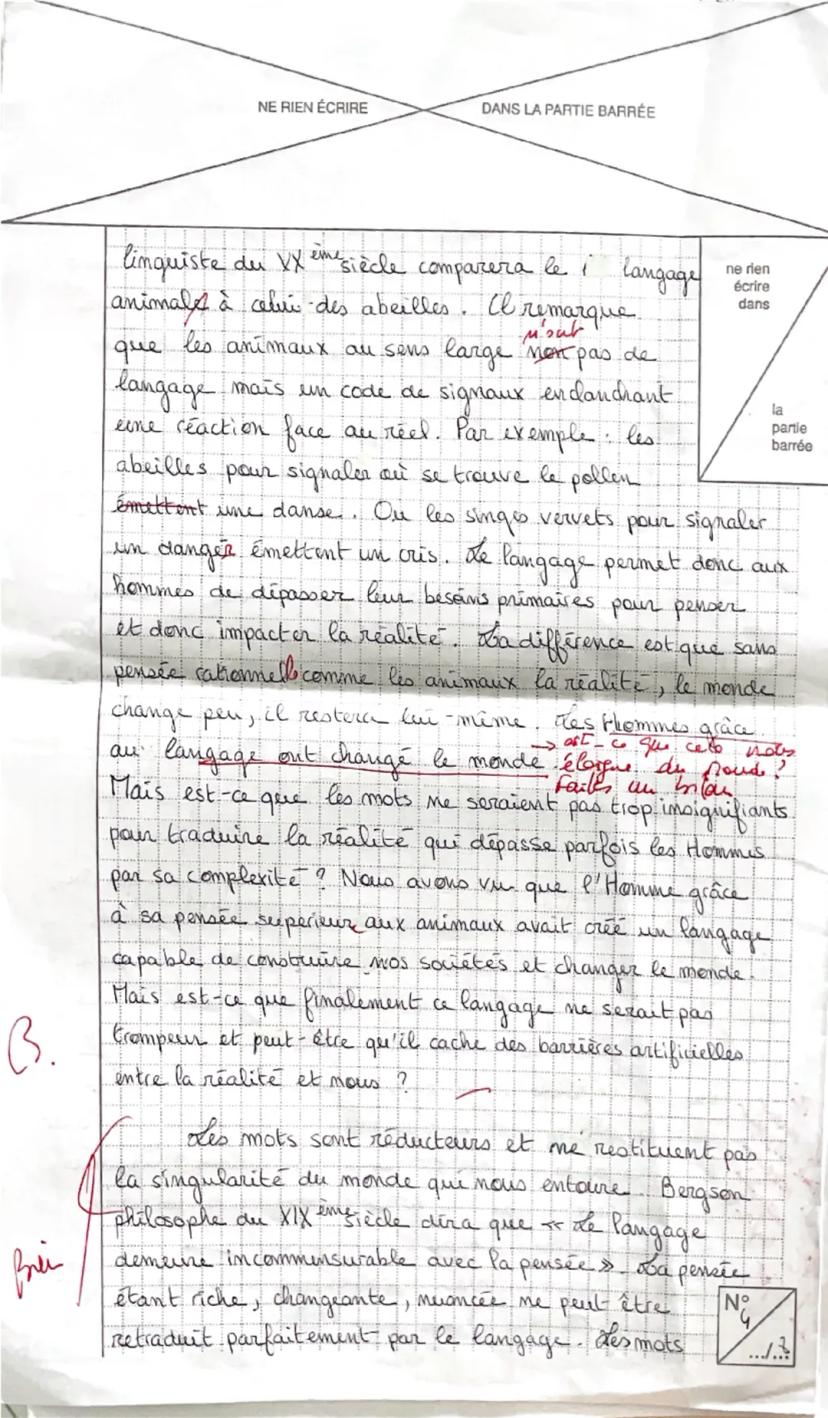 NE RIEN ÉCRIRE DANS LA PARTIE BARRÉE
ne rien
écrire
dans
la
partie
barrée
linguiste du VXème siècle comparera le langage
animal à celui des abeilles. Il remarque
n'ont
que les animaux au sens large non pas de
langage mais un code de signaux enclanchant
une réaction face au réel. Par exemple : les
abeilles pour signaler où se trouve le pollen
émettent une danse. Ou les singes vervets pour signaler
un danger émettent un cris. Le langage permet donc aux
hommes de dépasser leur besoins primaires pour penser
et donc impacter la réalité. La différence est que sans
pensée rationnelle comme les animaux la réalité, le monde
change peu, il restera lui-même. Les Hommes grâce
au langage ont changé le monde.
→ est-ce que cela nous
éloigne du monde ?
Faites un bilan
Mais est-ce que les mots ne seraient pas trop insignifiants
pour traduire la réalité qui dépasse parfois les Hommes
par sa complexité ? Nous avons vu que l'Homme grâce
à sa pensée superieur aux animaux avait créé un langage
capable de construire nos sociétés et changer le monde.
Mais est-ce que finalement ce langage ne serait pas
trompeur et peut-être qu'il cache des barrières artificielles
entre la réalité et nous ?
B.
Les mots sont réducteurs et ne restituent pas
la singularité du monde qui nous entoure. Bergson
philosophe du XIXème siècle dira que « Le langage
demeure incommensurable avec la pensée ». La pensée
étant riche, changeante, nuancée ne peut être
retraduit parfaitement par le langage. Les mots
N°
4
.../...